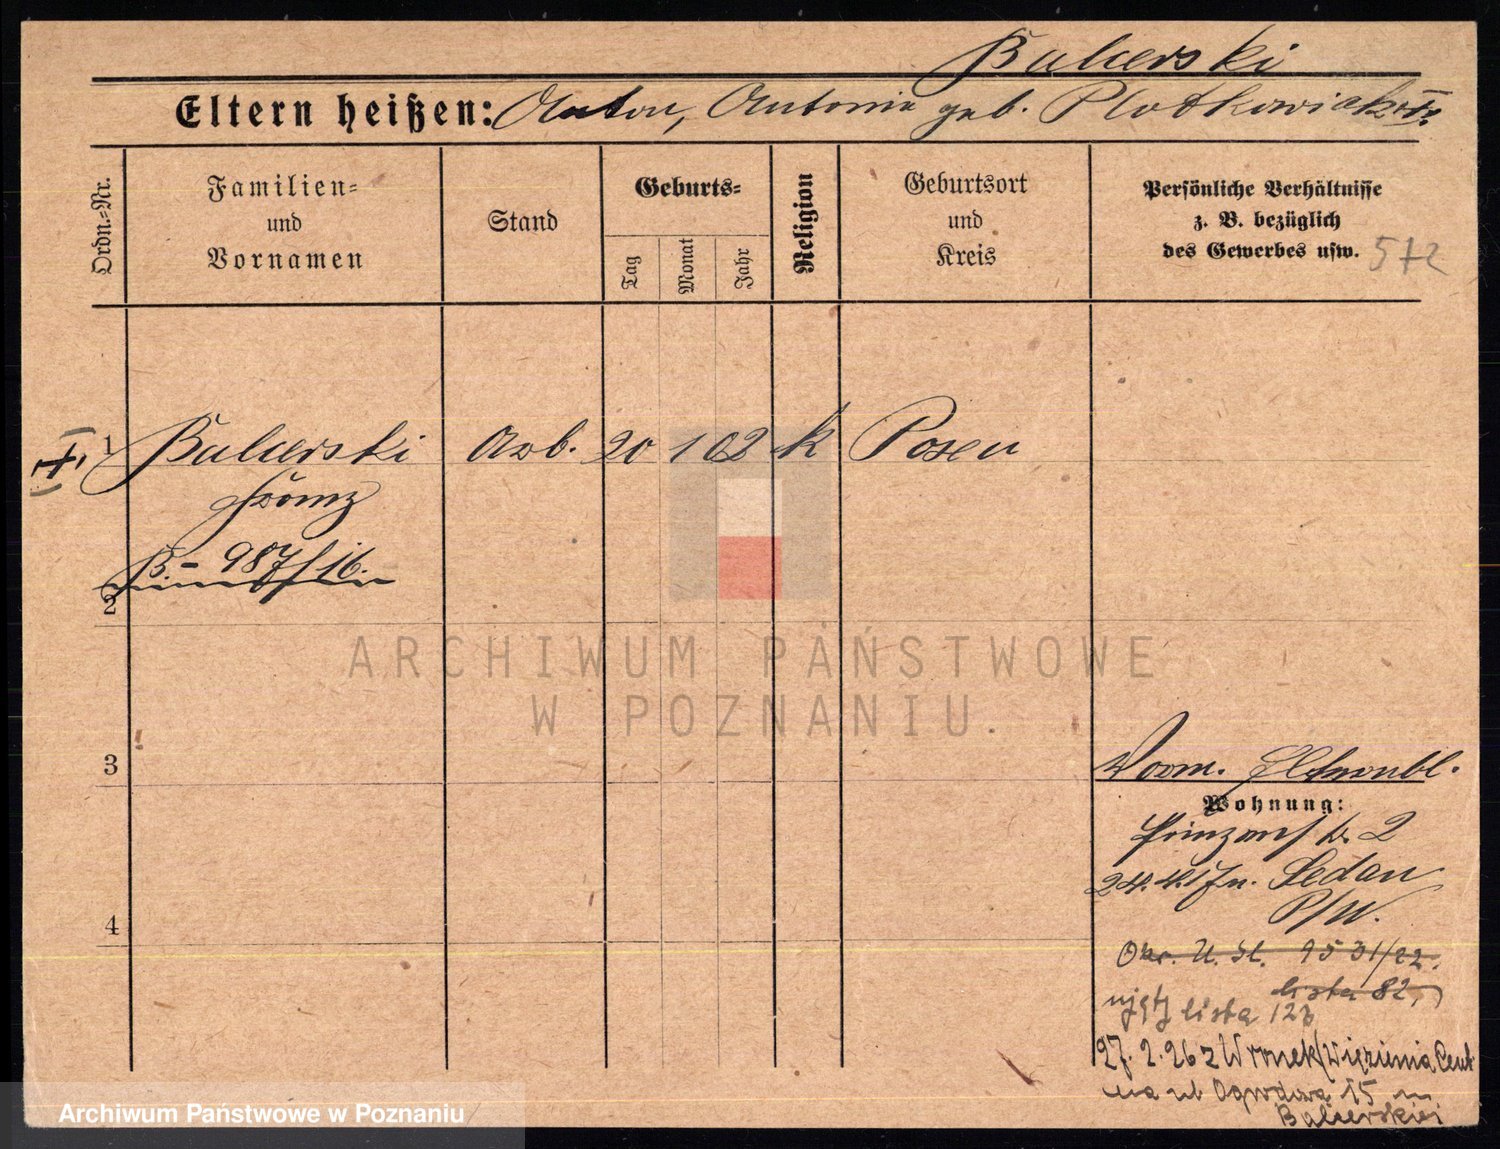 Balcerski
Eltern heißen: Anton, Antonie geb. Plotkowiak
Ordn.-Nr.
Familien-
und
Vornamen
Stand
Geburts-
Tag
Monat
Jahr
Religion
Geburtsort
und
Kreis
Persönliche Verhältnisse
z. B. bezüglich
des Gewerbes usw.
572
1 Balcerski Arb. 20 1 02 k Posen
Franz
B.- 987/16.
2
3
4
Vorm.
Wohnung:
2
24.4.17 n. Sedan
P/W.
Okr. U. St. 9531/22.
lista 82,
ujęty lista 123
27.2.26 z Wronek/Więzienia Cent
na ul Ogrodowa 15 m
Balcerskiej
ARCHIWUM PAŃSTWOWE
W POZNANIU.
Archiwum Państwowe w Poznaniu